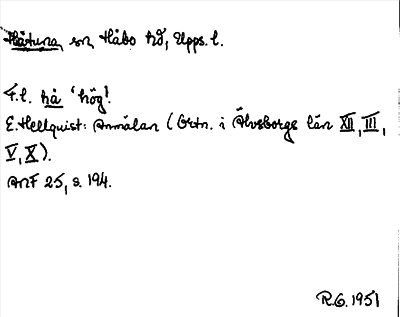 Håtuna sn Håbo hd, Upps. l.
F.l. hå 'hög'.
E. Hellquist: Anmälan (Ortn. i Älvsborgs län XII, III,
V, X).
ANF 25, s. 194.
R.G. 1951